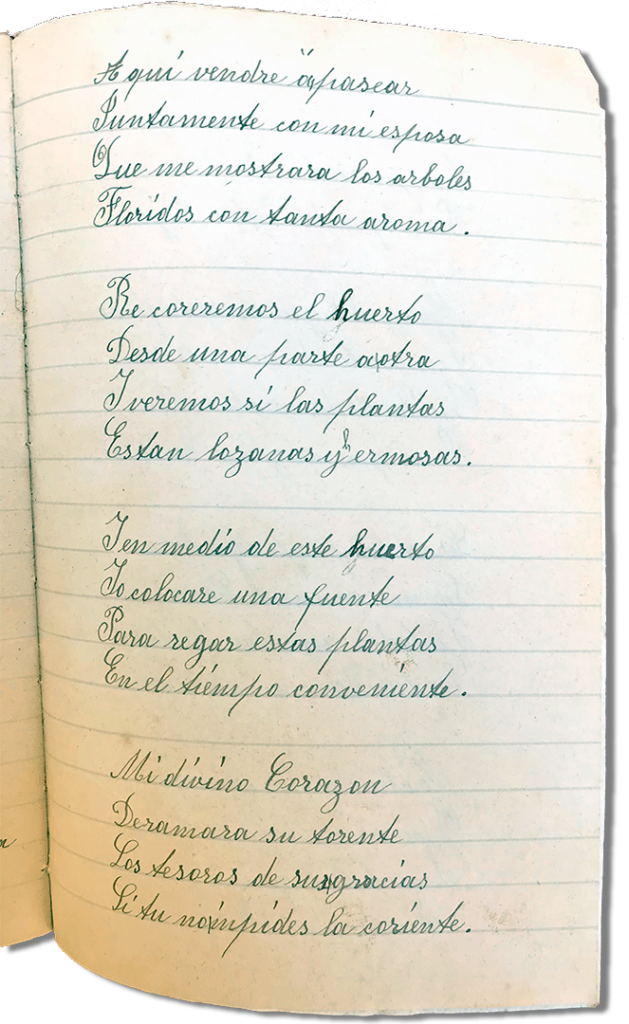 Aquí vendre a pasear
Juntamente con mi esposa
Que me mostrara los arboles
Floridos con tanta aroma.
Re coreremos el huerto
Desde una parte a otra
I veremos si las plantas
Estan lozanas y hermosas.
I en medio de este huerto
Io colocare una fuente
Para regar estas plantas
En el tiempo conveniente.
Mi divino Corazon
Deramara su torente
Los tesoros de sus gracias
Si tu no inpides la coriente.